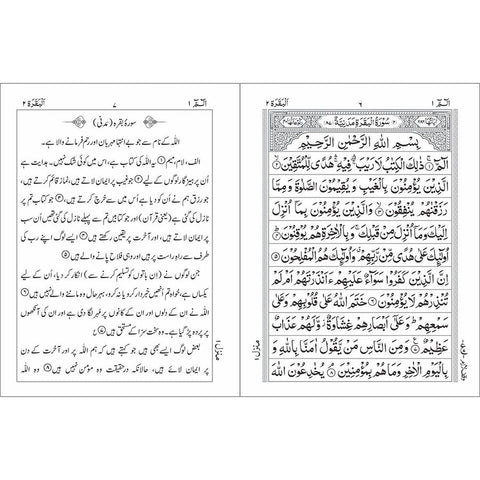 الٓمّٓ ١
٦
البقرة ٢
سُوْرَةُ الْبَقَرَةِ مَدَنِيَّةٌ
بِسْمِ اللّٰهِ الرَّحْمٰنِ الرَّحِيْمِ
الٓمّٓ ۝١ ذٰلِكَ الْكِتٰبُ لَا رَيْبَ ۛ فِيْهِ ۛ هُدًى لِّلْمُتَّقِيْنَ ۝٢
الَّذِيْنَ يُؤْمِنُوْنَ بِالْغَيْبِ وَيُقِيْمُوْنَ الصَّلٰوةَ وَمِمَّا
رَزَقْنٰهُمْ يُنْفِقُوْنَ ۝٣ وَالَّذِيْنَ يُؤْمِنُوْنَ بِمَآ اُنْزِلَ
اِلَيْكَ وَمَآ اُنْزِلَ مِنْ قَبْلِكَ ۚ وَبِالْاٰخِرَةِ هُمْ يُوْقِنُوْنَ ۝٤
اُولٰٓئِكَ عَلٰى هُدًى مِّنْ رَّبِّهِمْ ۙ وَاُولٰٓئِكَ هُمُ الْمُفْلِحُوْنَ ۝٥
اِنَّ الَّذِيْنَ كَفَرُوْا سَوَآءٌ عَلَيْهِمْ ءَاَنْذَرْتَهُمْ اَمْ لَمْ
تُنْذِرْهُمْ لَا يُؤْمِنُوْنَ ۝٦ خَتَمَ اللّٰهُ عَلٰى قُلُوْبِهِمْ وَعَلٰى
سَمْعِهِمْ ۭ وَعَلٰٓى اَبْصَارِهِمْ غِشَاوَةٌ ۡ وَّلَهُمْ عَذَابٌ
عَظِيْمٌ ۝٧ وَمِنَ النَّاسِ مَنْ يَّقُوْلُ اٰمَنَّا بِاللّٰهِ وَ
بِالْيَوْمِ الْاٰخِرِ وَمَا هُمْ بِمُؤْمِنِيْنَ ۝٨ يُخٰدِعُوْنَ اللّٰهَ
منزل ١
الٓمّٓ ١
٧
البقرة ٢
سورۂ بقرہ (مدنی)
اللہ کے نام سے جو بے انتہا مہربان اور رحم فرمانے والا ہے۔
الف، لام، میم ۝١ یہ اللہ کی کتاب ہے، اس میں کوئی شک نہیں۔ ہدایت ہے
اُن پرہیزگار لوگوں کے لیے ۝٢ جو غیب پر ایمان لاتے ہیں، نماز قائم کرتے ہیں،
جو رزق ہم نے اُن کو دیا ہے اُس میں سے خرچ کرتے ہیں ۝٣ اور جو کتاب تم پر
نازل کی گئی ہے (یعنی قرآن) اور جو کتابیں تم سے پہلے نازل کی گئی تھیں اُن سب
پر ایمان لاتے ہیں، اور آخرت پر یقین رکھتے ہیں ۝٤ ایسے لوگ اپنے رب کی
طرف سے راہ راست پر ہیں اور وہی فلاح پانے والے ہیں ۝٥
جن لوگوں نے (اِن باتوں کو تسلیم کرنے سے) انکار کر دیا، اُن کے لیے
یکساں ہے، خواہ تم اُنھیں خبردار کرو یا نہ کرو، بہرحال وہ ماننے والے نہیں ہیں ۝٦
اللہ نے ان کے دلوں اور ان کے کانوں پر مہر لگا دی ہے اور ان کی آنکھوں
پر پردہ پڑ گیا ہے۔ وہ سخت سزا کے مستحق ہیں ۝٧
بعض لوگ ایسے بھی ہیں جو کہتے ہیں کہ ہم اللہ پر اور آخرت کے دن
پر ایمان لائے ہیں، حالانکہ درحقیقت وہ مومن نہیں ہیں ۝٨ وہ اللہ
منزل ١